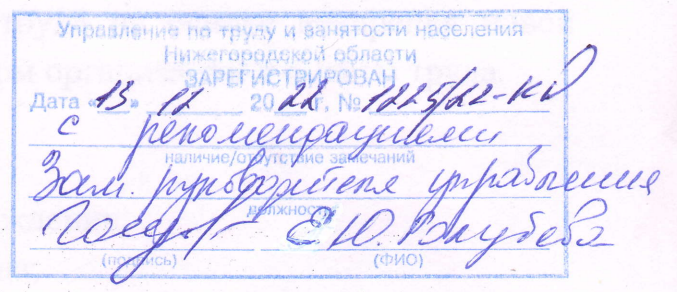 Управление по труду и занятости населения
Нижегородской области
ЗАРЕГИСТРИРОВАН
Дата «13» 12 2022 г, № 1225/22-КД
с рекомендациями
наличие/отсутствие замечаний
Зам. руководителя управления
должность
Е.Ю. Голубева
(подпись) (ФИО)